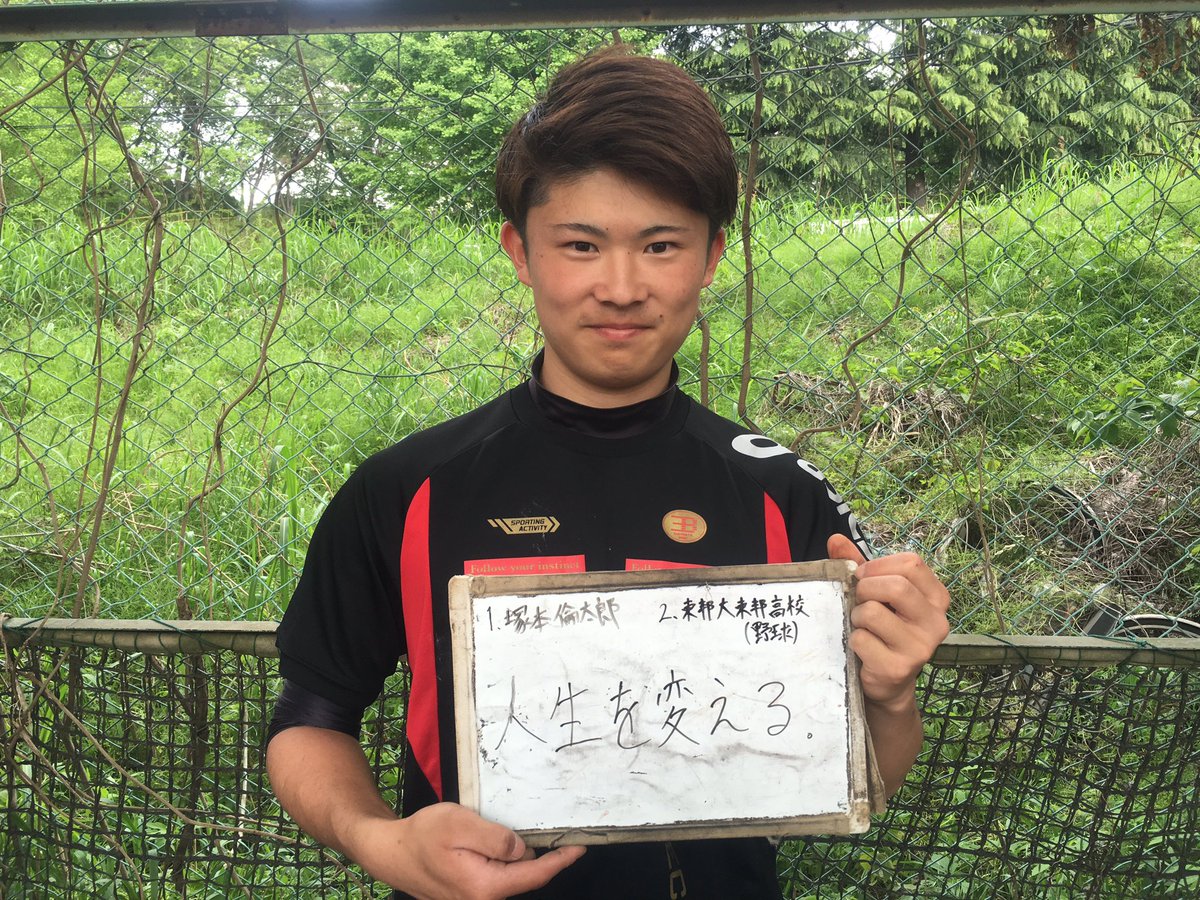 SPORTING
ACTIVITY
Follow your instinct
1. 塚本倫太郎
2. 東邦大東邦高校
(野球)
人生を変える.